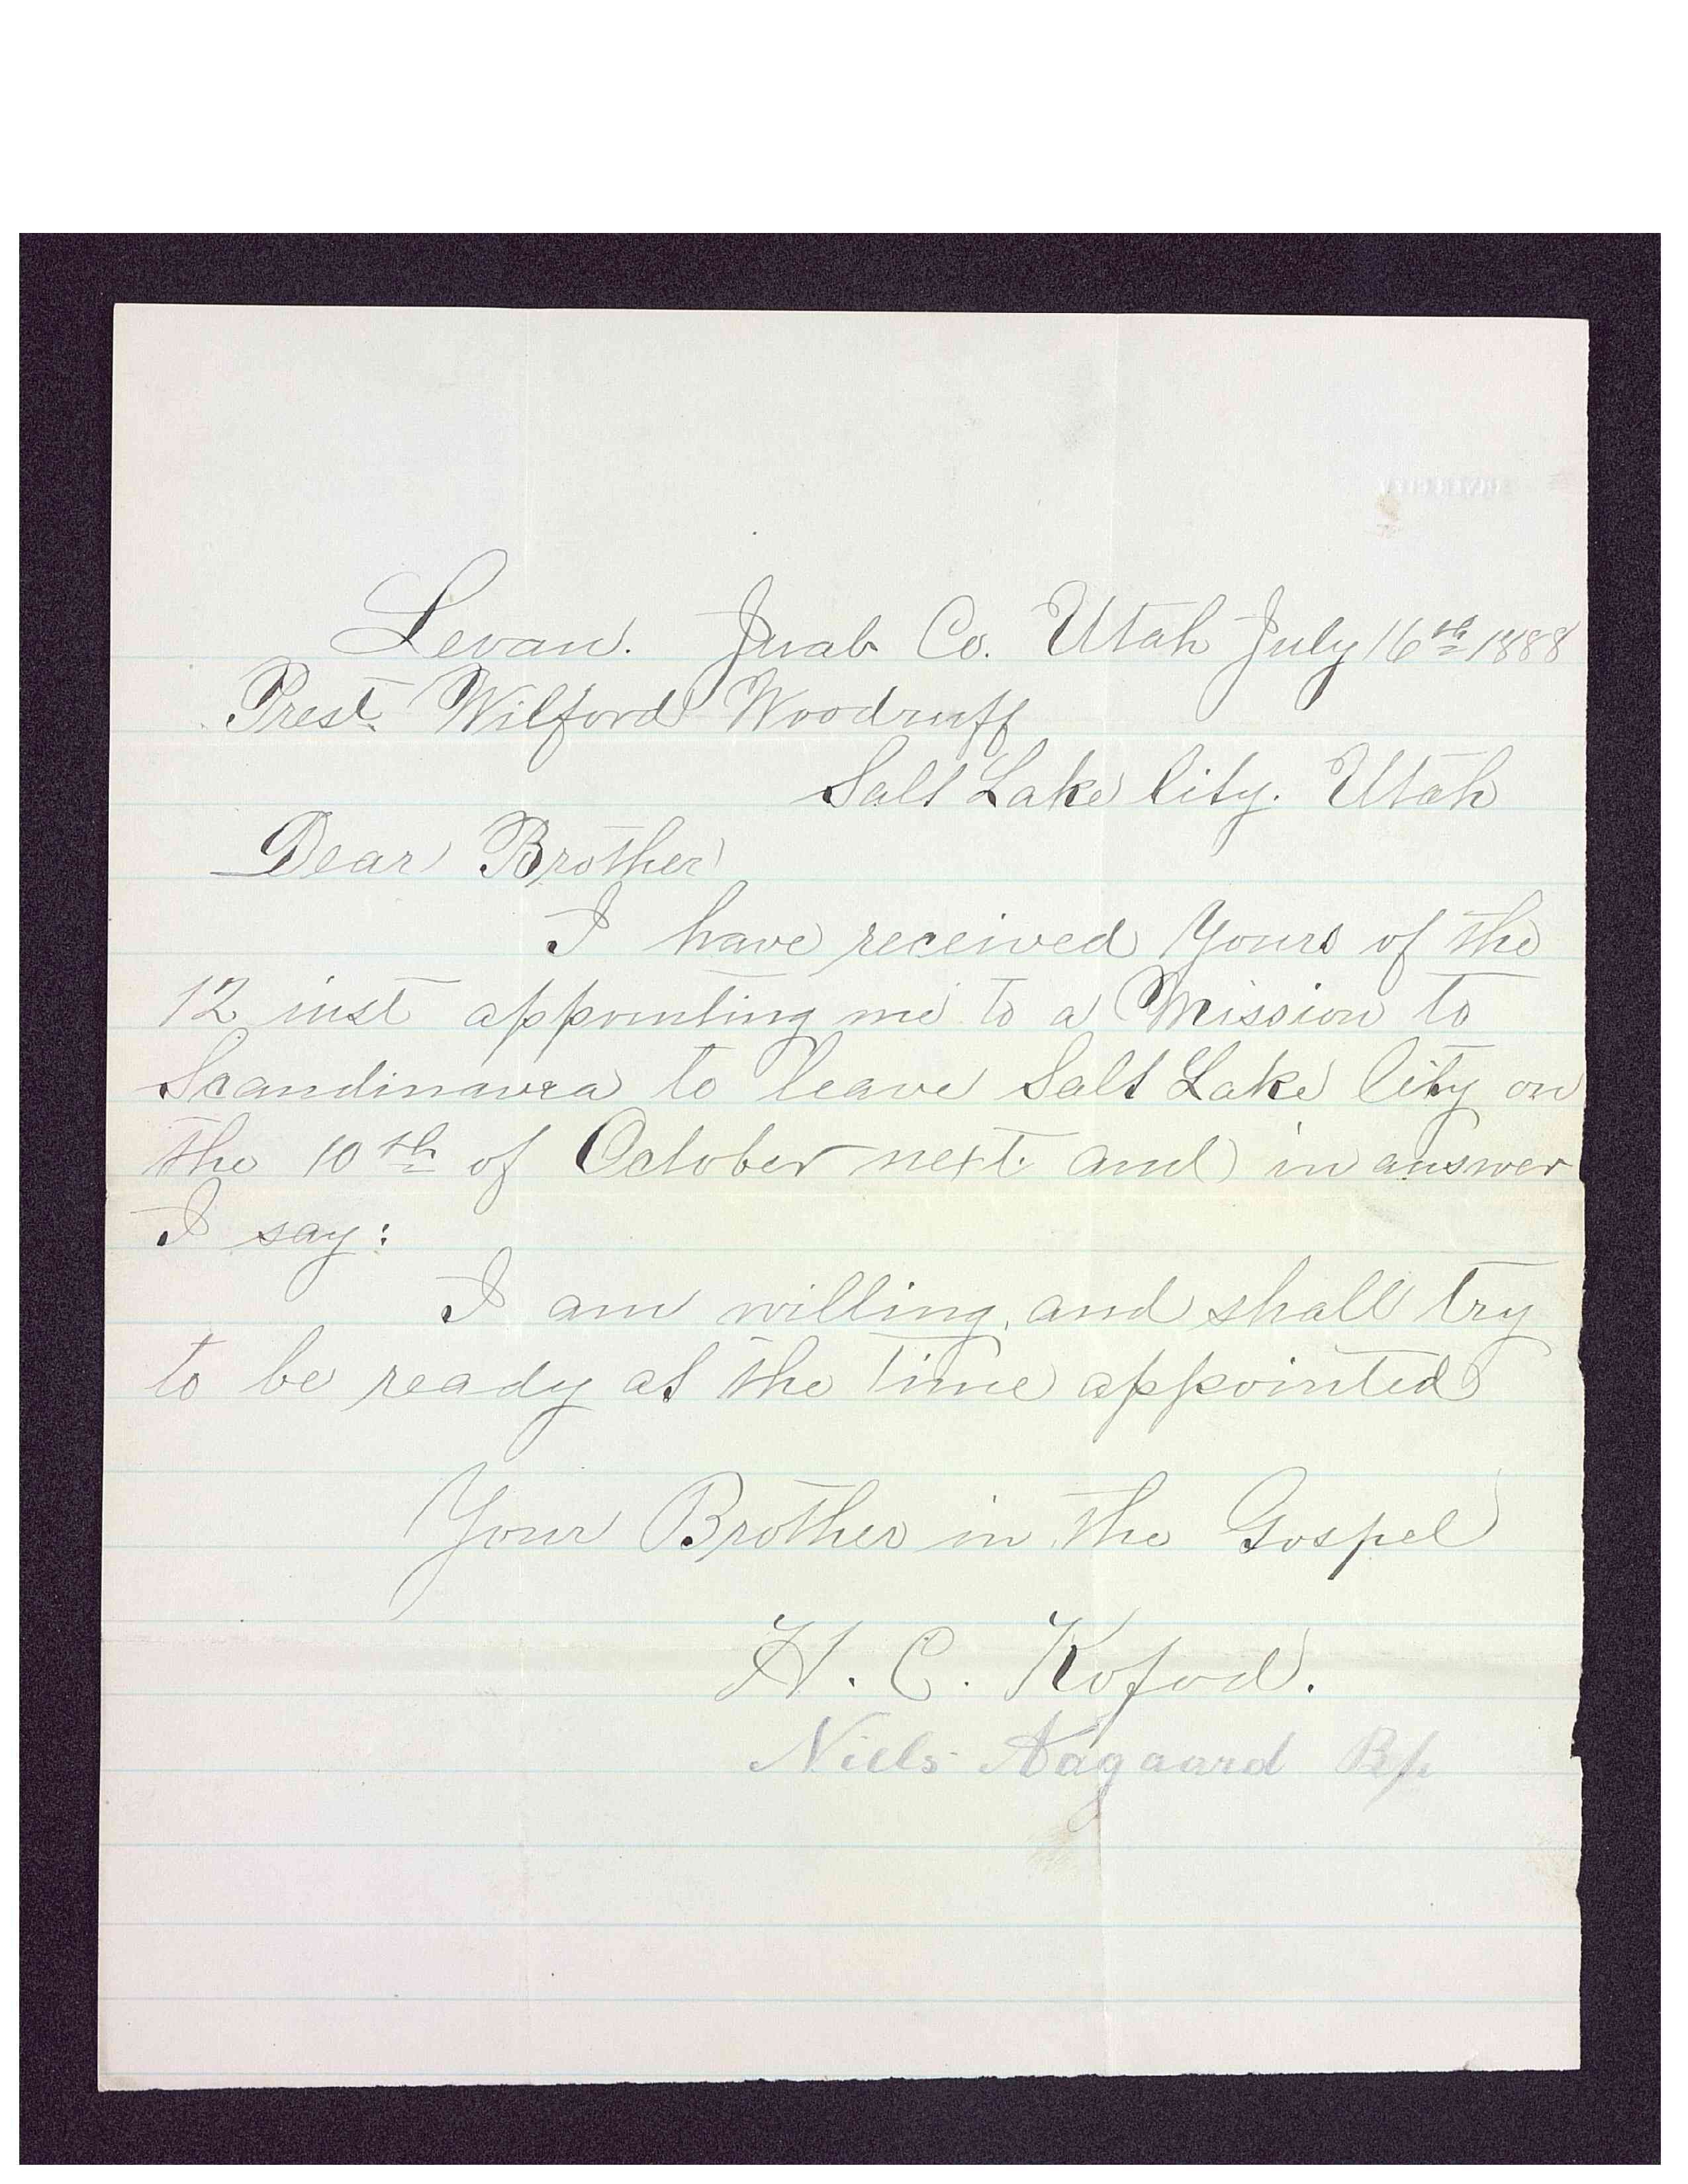 Levan. Juab Co. Utah July 16th 1888
Prest. Wilford Woodruff
Salt Lake City. Utah
Dear Brother
I have received Yours of the
12 inst appointing me to a Mission to
Scandinavia to leave Salt Lake City on
the 10th of October next. and in answer
I say:
I am willing, and shall try
to be ready at the time appointed
Your Brother in the Gospel
H. C. Kofod.
Niels Aagaard Bp